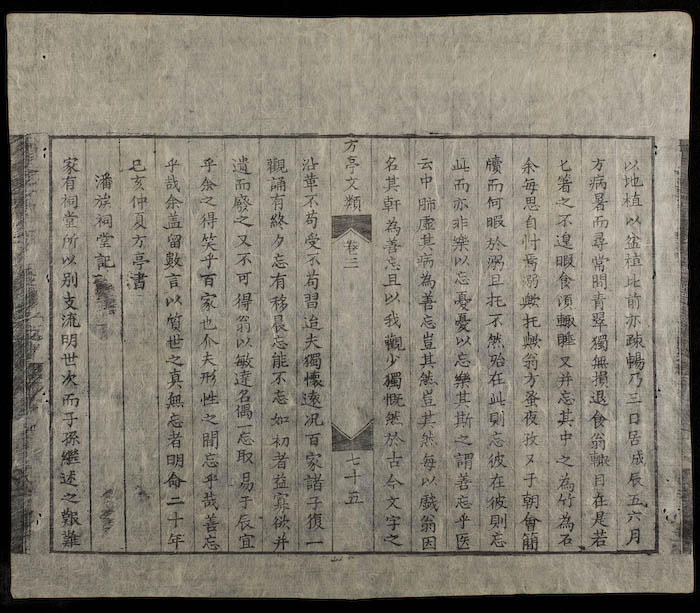 以地植以盆植比前亦疎暢乃三日居戍辰五六月
方病暑而尋常問青翠獨無損退食翁輙目在是若
匕箸之不遑暇食頃輙睡又并忘其中之為竹為石
余每思自忖焉溺歟托歟翁方蚤夜孜又于朝會簡
牘而何暇於溺且托不然殆在此則忘彼在彼則忘
此而亦非樂以忘憂憂以忘樂其斯之謂善忘乎医
云中肺虛其病為善忘豈其然豈其然每以戲翁因
名其軒為善忘且以我觀少獨慨然於古今文字之
方亭文類 卷三 七十五
沿革不苟受不苟習追夫獨懷遠况百家諸子復一
觀誦有終夕忘有移晨忘能不忘如初者益寡欲并
遺而廢之又不可得翁以敏達名偶一忘取易于辰宜
乎余之得笑乎百家也夫形性之間忘乎哉善忘
乎哉余盖留數言以質世之真無忘者明命二十年
已亥仲夏方亭書
潘族祠堂記
家有祠堂所以別支流明世次而子孫繼述之艱難